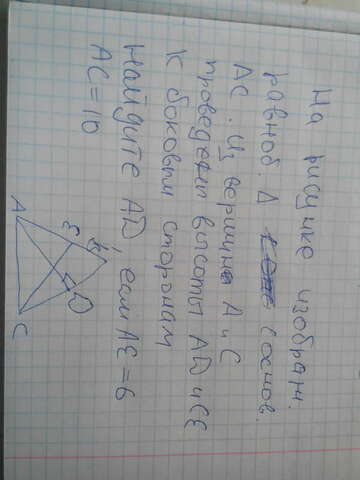 На рисунке изображ.
равноб. Δ с основ.
AC. Из вершин A и C
проведены высоты AD и CE
к боковым сторонам
Найдите AD, если AE=6
AC=10
A
E
B
D
C